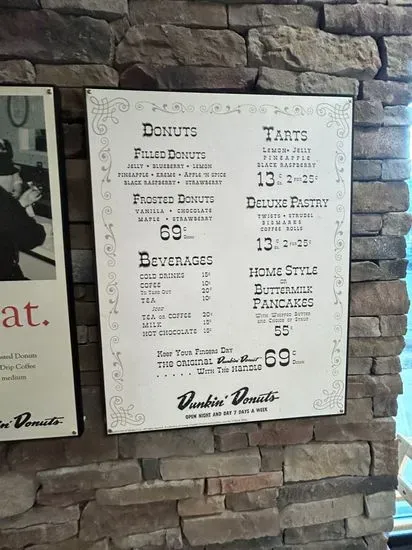 at.
osted Donuts
Drip Coffee
medium
Dunkin' Donuts
DONUTS
FILLED DONUTS
JELLY • BLUEBERRY • LEMON
PINEAPPLE • KREME • APPLE 'N SPICE
BLACK RASPBERRY • STRAWBERRY
FROSTED DONUTS
VANILLA • CHOCOLATE
MAPLE • STRAWBERRY
69¢ DOZEN
BEVERAGES
COLD DRINKS 15¢
COFEE 10¢
TO TAKE OUT 20¢
TEA 10¢
ICED
TEA OR COFFEE 20¢
MILK 15¢
HOT CHOCOLATE 15¢
TARTS
LEMON • JELLY
PINEAPPLE
BLACK RASPBERRY
13¢ EA. 2 FOR 25¢
DELUXE PASTRY
TWISTS • STRUDEL
BISMARKS
COFFEE ROLLS
13¢ EA. 2 FOR 25¢
HOME STYLE
OR
BUTTERMILK
PANCAKES
WITH WHIPPED BUTTER
AND CHOICE OF SYRUP
55¢
KEEP YOUR FINGERS DRY
THE ORIGINAL Dunkin' Donut 69¢ DOZEN
. . . . . WITH THE HANDLE
Dunkin' Donuts
OPEN NIGHT AND DAY 7 DAYS A WEEK